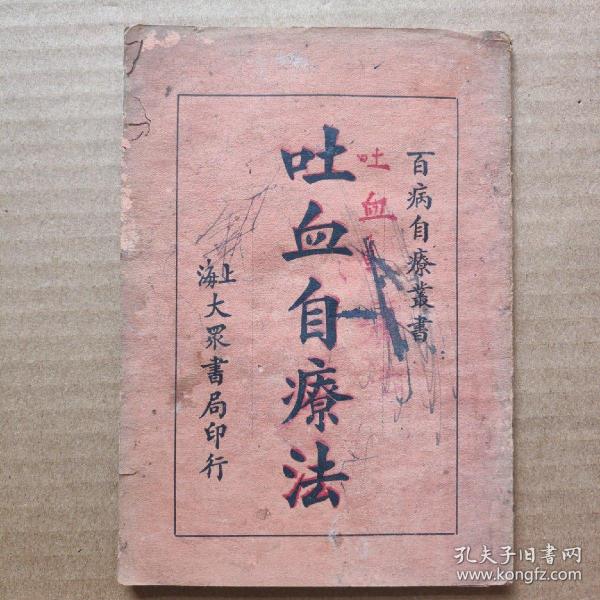 百病自療叢書
吐血
吐血自療法
上海大眾書局印行
孔夫子旧书网
www.kongfz.com